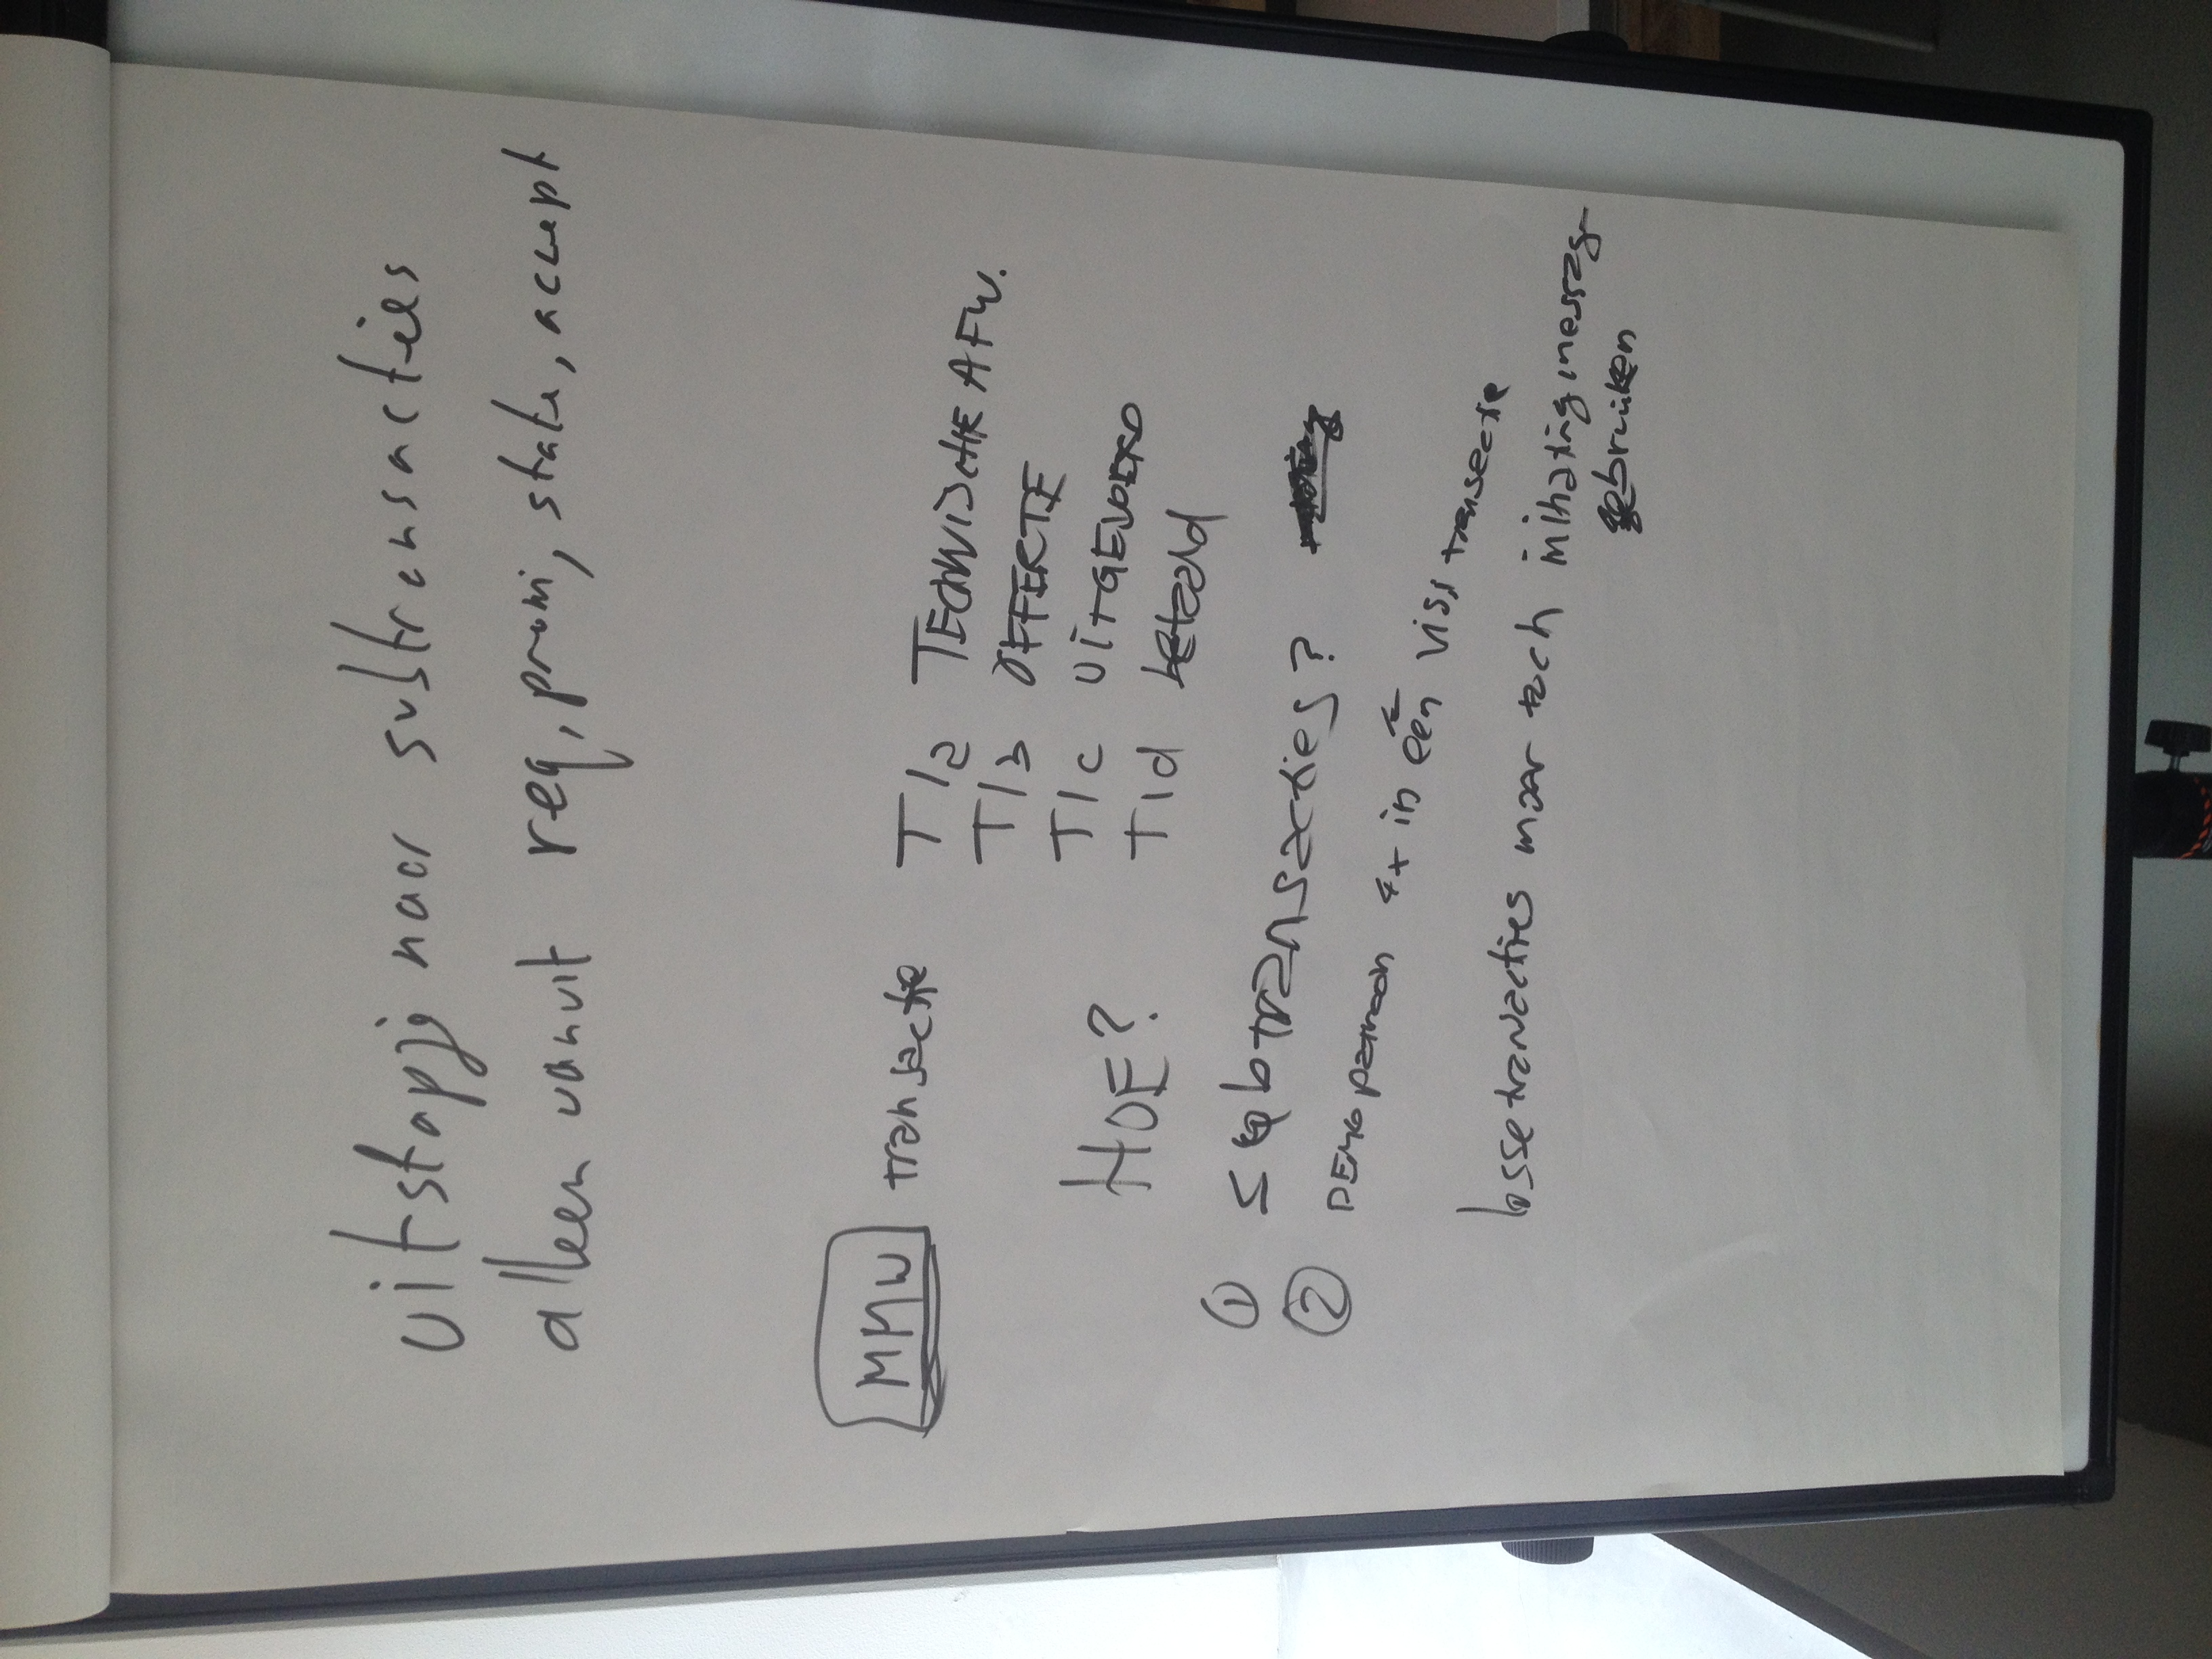 uitstapje naar subtransacties
alleen vanuit req, promi, state, accept
MMW transactie T1a TECHNISCHE AFW.
T1b OFFERTE
T1c UITGEVOERD
HOE? T1d betaald
① subtransacties?
② DEMO patroon 4x in één VISI transactie
losse transacties maar toch initiating message
gebruiken